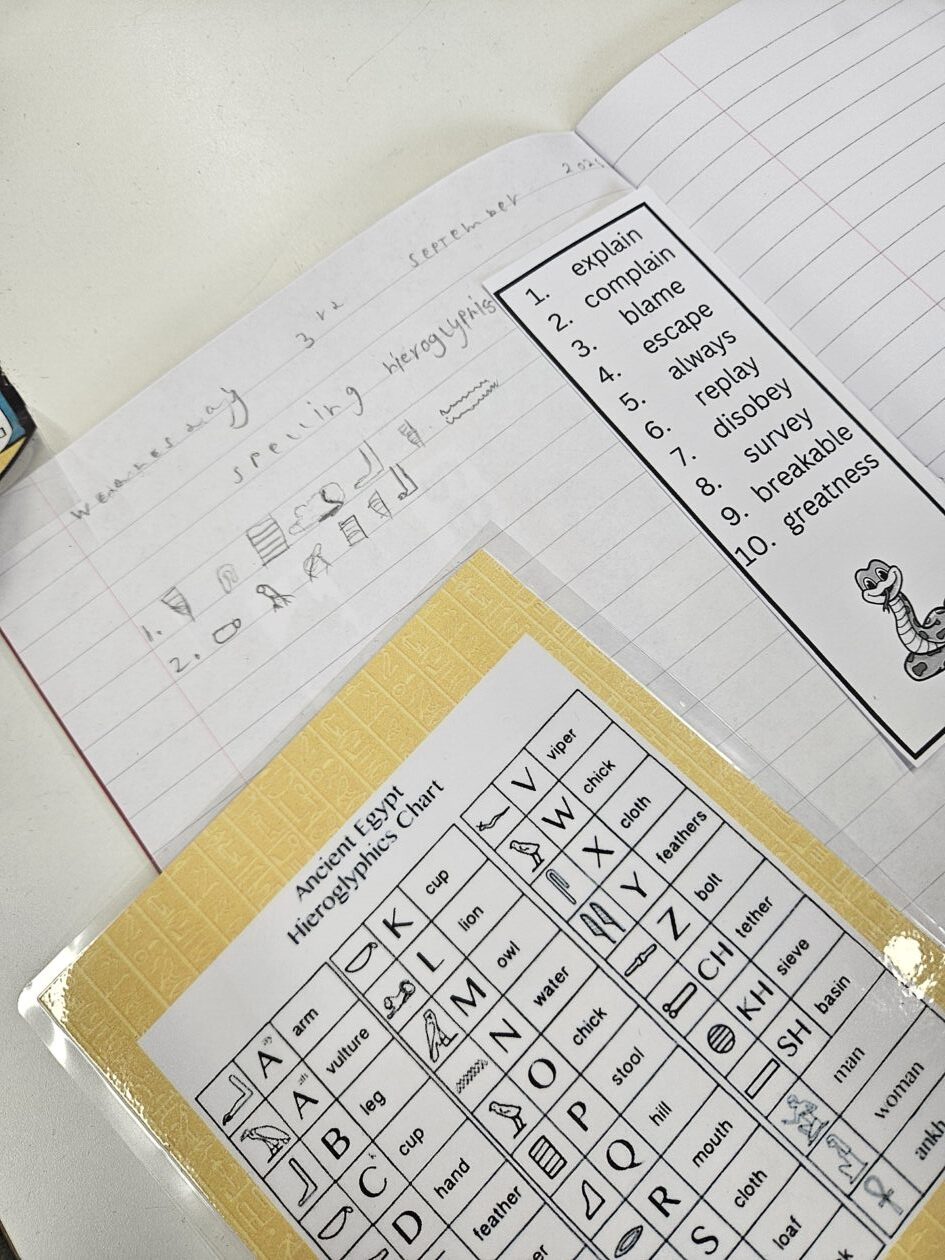 Wednesday 3rd September
spelling hieroglyphics
1.
2.
1. explain
2. complain
3. blame
4. escape
5. always
6. replay
7. disobey
8. survey
9. breakable
10. greatness
Ancient Egypt
Hieroglyphics Chart
A arm
A vulture
B leg
C cup
D hand
feather
K cup
L lion
M owl
N water
O chick
P stool
Q hill
R mouth
S cloth
loaf
V viper
W chick
X cloth
Y feathers
Z bolt
CH tether
KH sieve
SH basin
man
woman
ankh